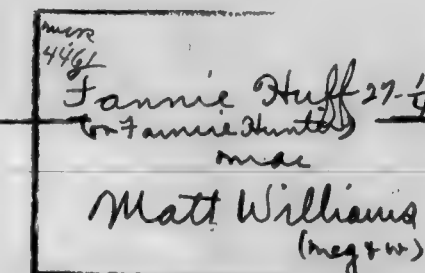 4461
Fannie Huff 27-1/4
(or Fannie Hunter)
mac
Matt Williams
(neg & w)